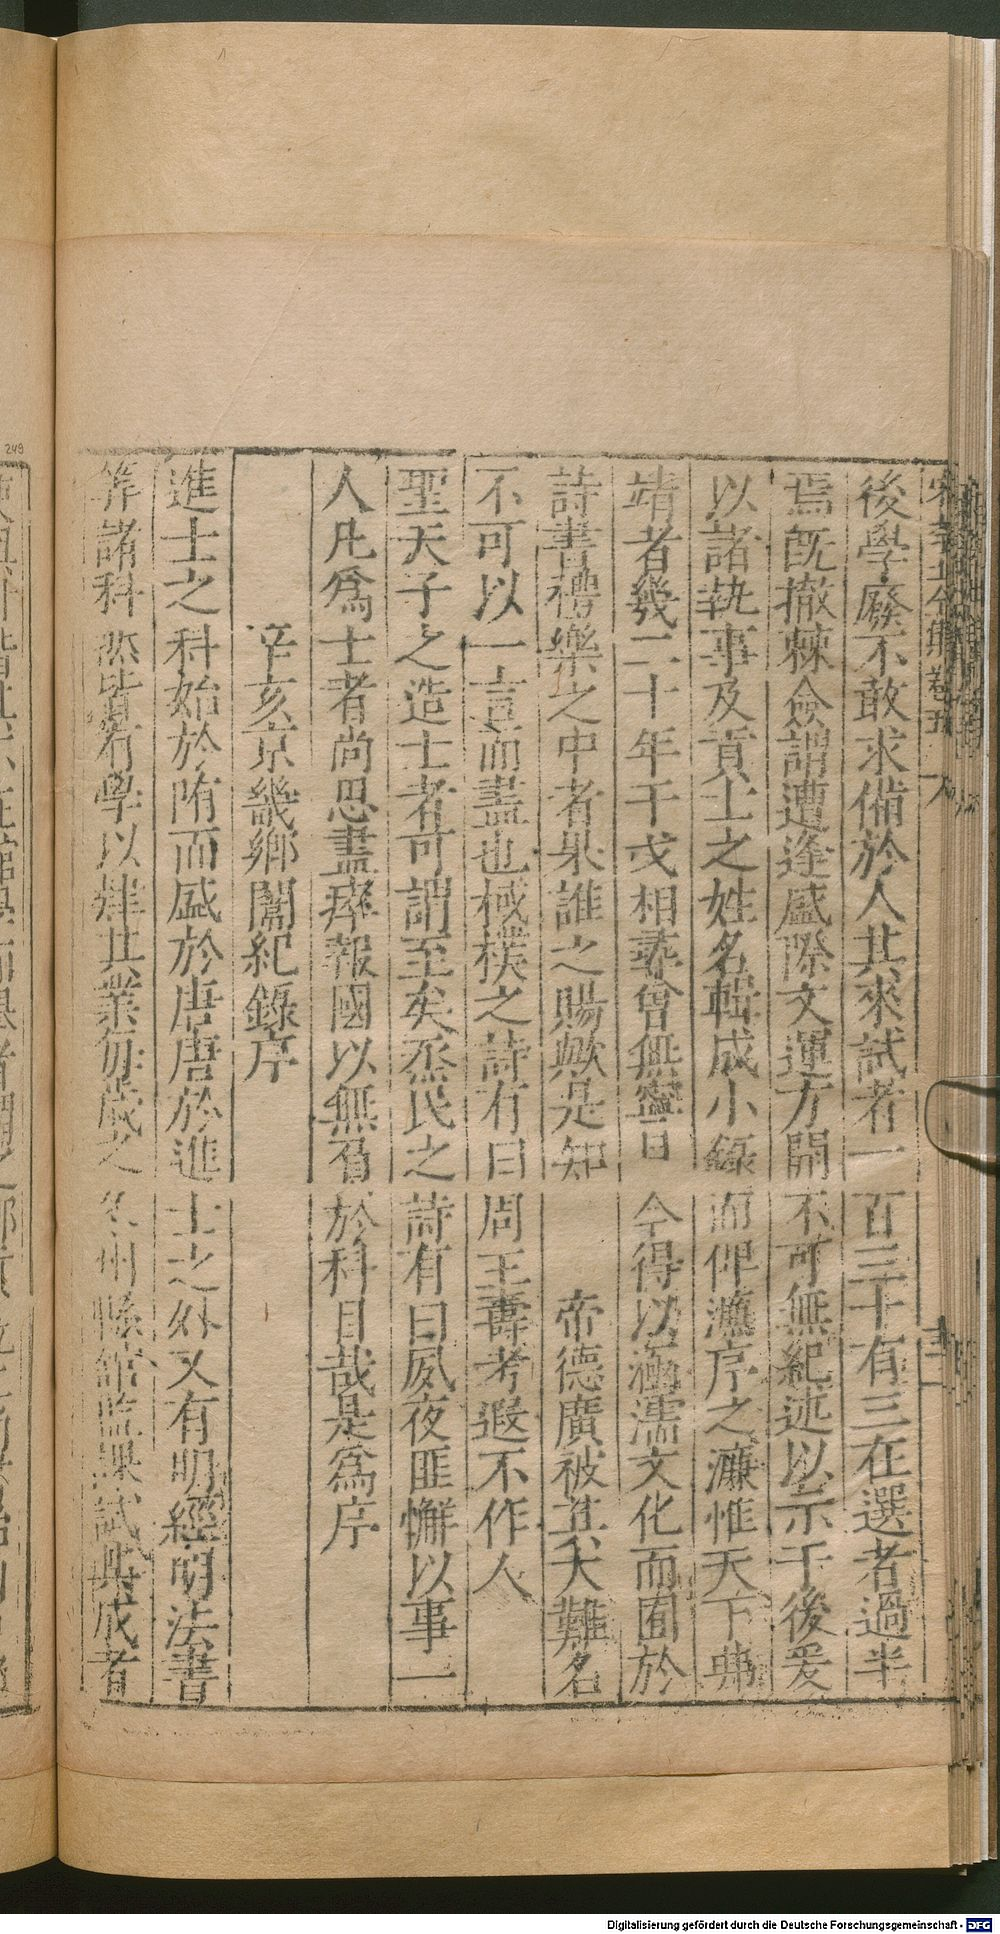 後學廢不敢求備於人其來試者一百三十有三在選者過半
焉旣撤棘僉謂遭逢盛際文運方開不可無紀述以示于後爰
以諸執事及貢士之姓名輯成小錄而俾濂序之濂惟天下弗
靖者幾二十年干戈相尋曾無寧日今得以涵濡文化而囿於
詩書禮樂之中者果誰之賜歟是知 帝德廣被其大難名
不可以一言而盡也棫樸之詩有曰周王壽考遐不作人
聖天子之造士者可謂至矣烝民之詩有曰夙夜匪懈以事一
人凡爲士者尚思盡瘁報國以無負於科目哉是爲序
辛亥京畿鄉闈紀錄序
進士之科始於隋而盛於唐唐於進士之外又有明經明法書
筭諸科然皆有學以肄其業每歲之冬州縣館監課試其成者
249
Digitalisierung gefördert durch die Deutsche Forschungsgemeinschaft - DFG